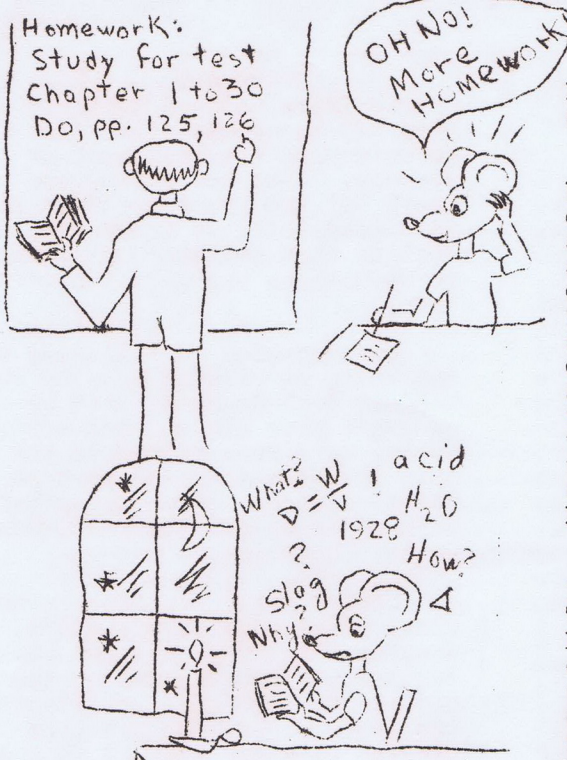 Homework:
Study for test
Chapter 1 to 30
Do, pp. 125, 126
OH NO!
More
Homework!
What?
D = W/V
!
acid
H2O
1928
?
How?
Slog
?
Why